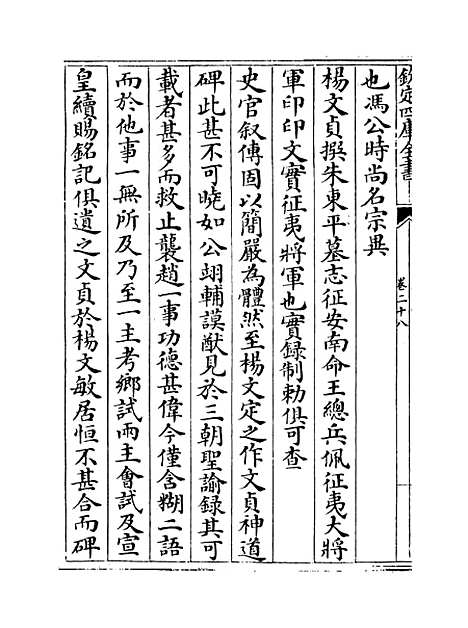 欽定四庫全書
卷二十八
也馮公時尚名宗異
楊文貞撰朱東平墓志征安南命王總兵佩征夷大將
軍印印文實征夷將軍也實録制勅俱可查
史官叙傳固以簡嚴為體然至楊文定之作文貞神道
碑此甚不可曉如公翊輔謨猷見於三朝聖諭録其可
載者甚多而救止襲趙一事功德甚偉今僅含糊二語
而於他事一無所及乃至一主考鄉試兩主會試及宣
皇續賜銘記俱遺之文貞於楊文敏居恒不甚合而碑